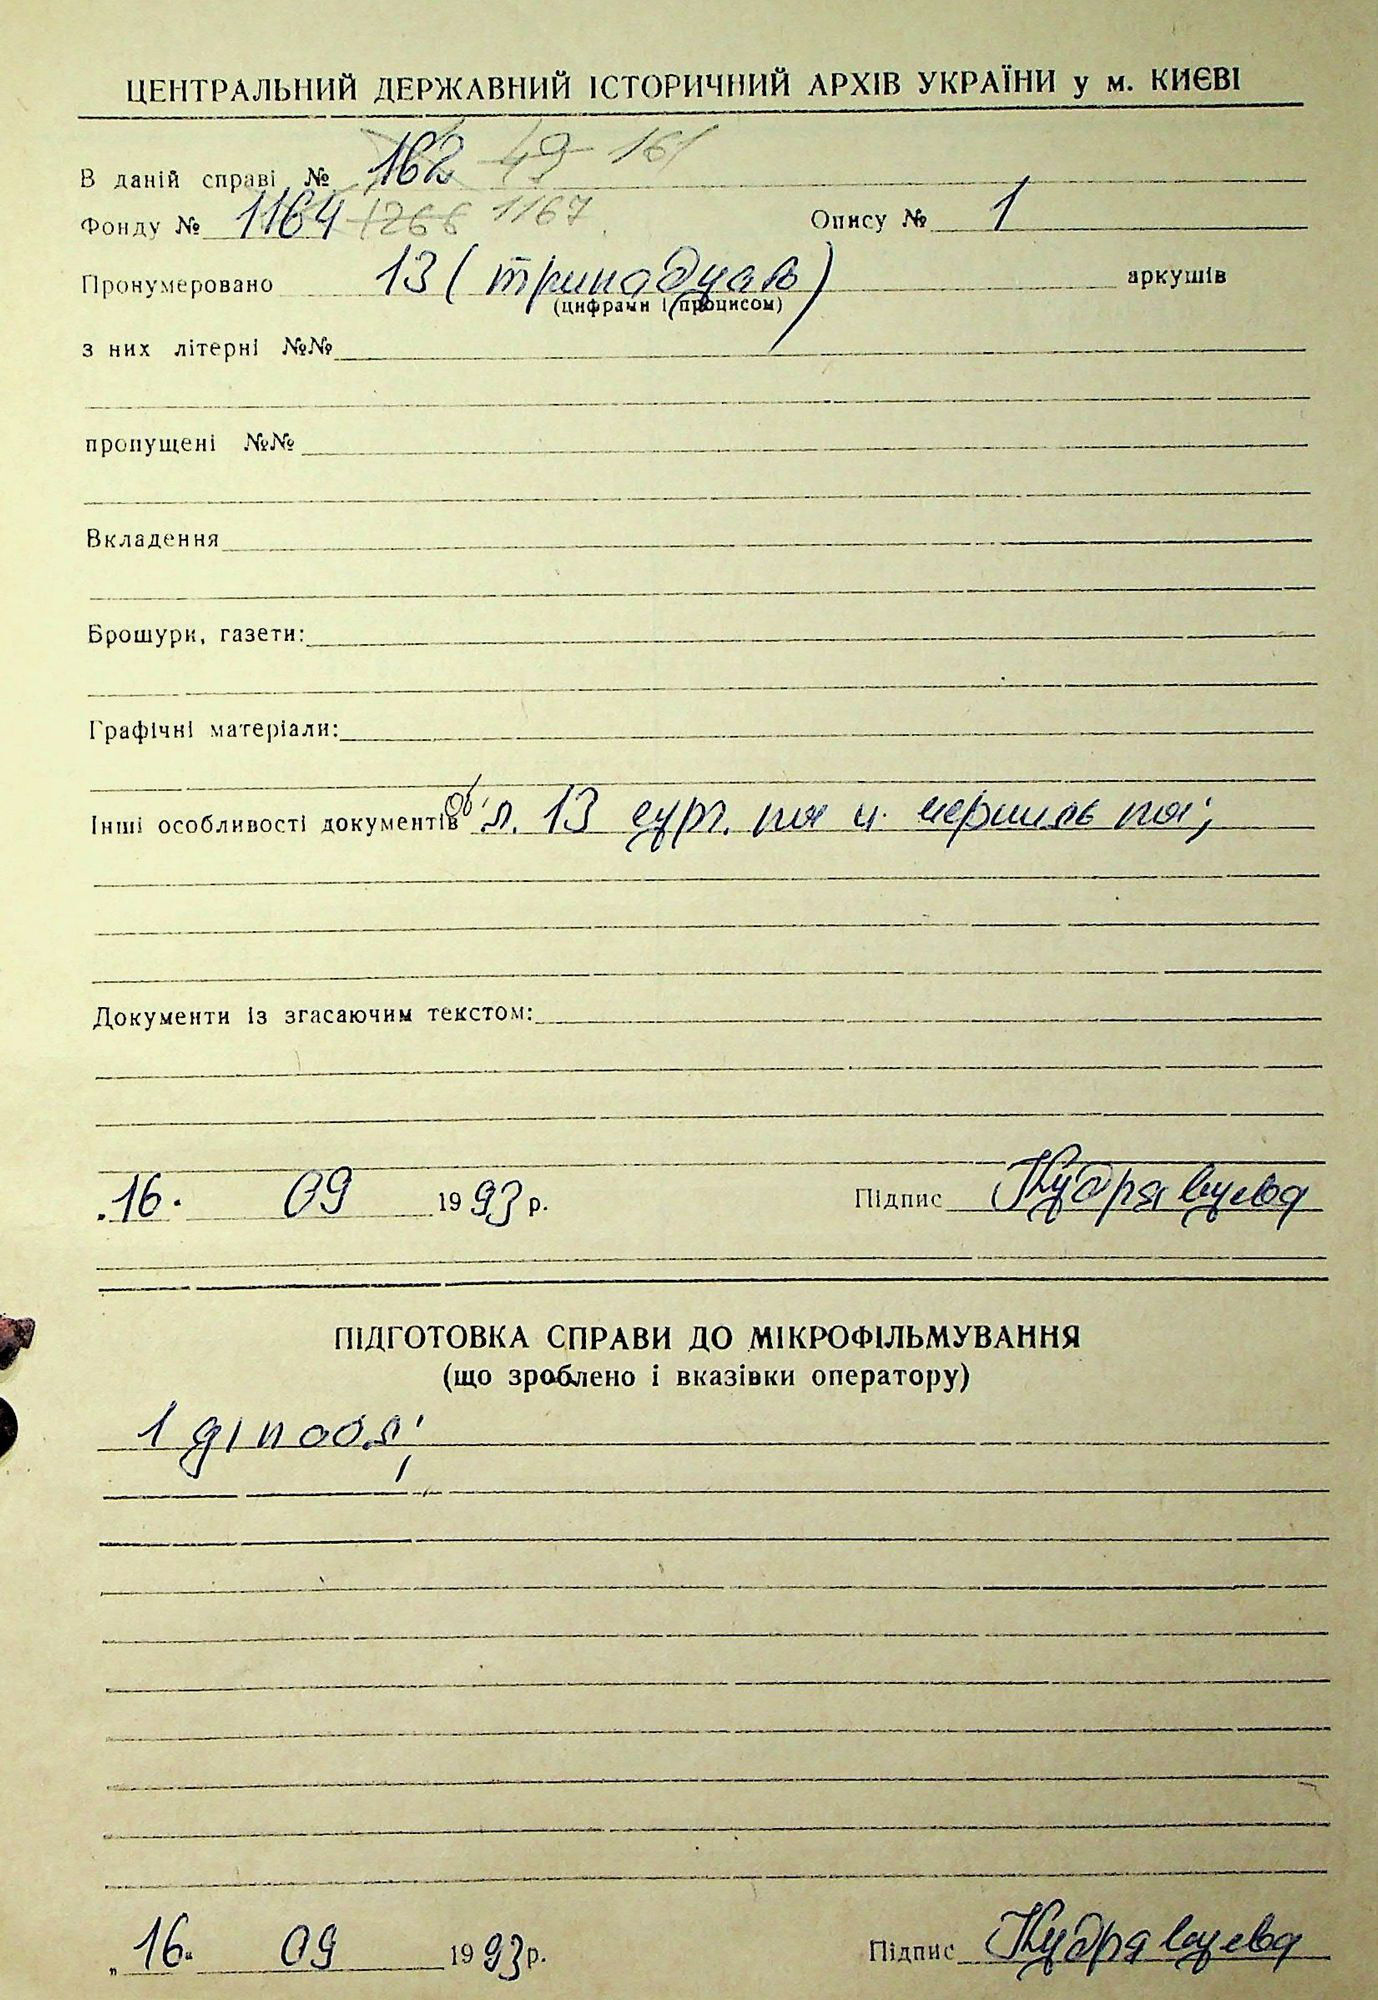 ЦЕНТРАЛЬНИЙ ДЕРЖАВНИЙ ІСТОРИЧНИЙ АРХІВ УКРАЇНИ у м. КИЄВІ
В даній справі № 162 49 161
Фонду № 1164 1266 1167 Опису № 1
Пронумеровано 13 (тринадцать) аркушів
(цифрами і прописом)
з них літерні №№
пропущені №№
Вкладення
Брошури, газети:
Графічні матеріали:
Інші особливості документів об. л. 13 сург. печ. и
Документи із згасаючим текстом:
„16" 09 1993 р. Підпис Кудрявцева
ПІДГОТОВКА СПРАВИ ДО МІКРОФІЛЬМУВАННЯ
(що зроблено і вказівки оператору)
1
„16" 09 1993 р. Підпис Кудрявцева